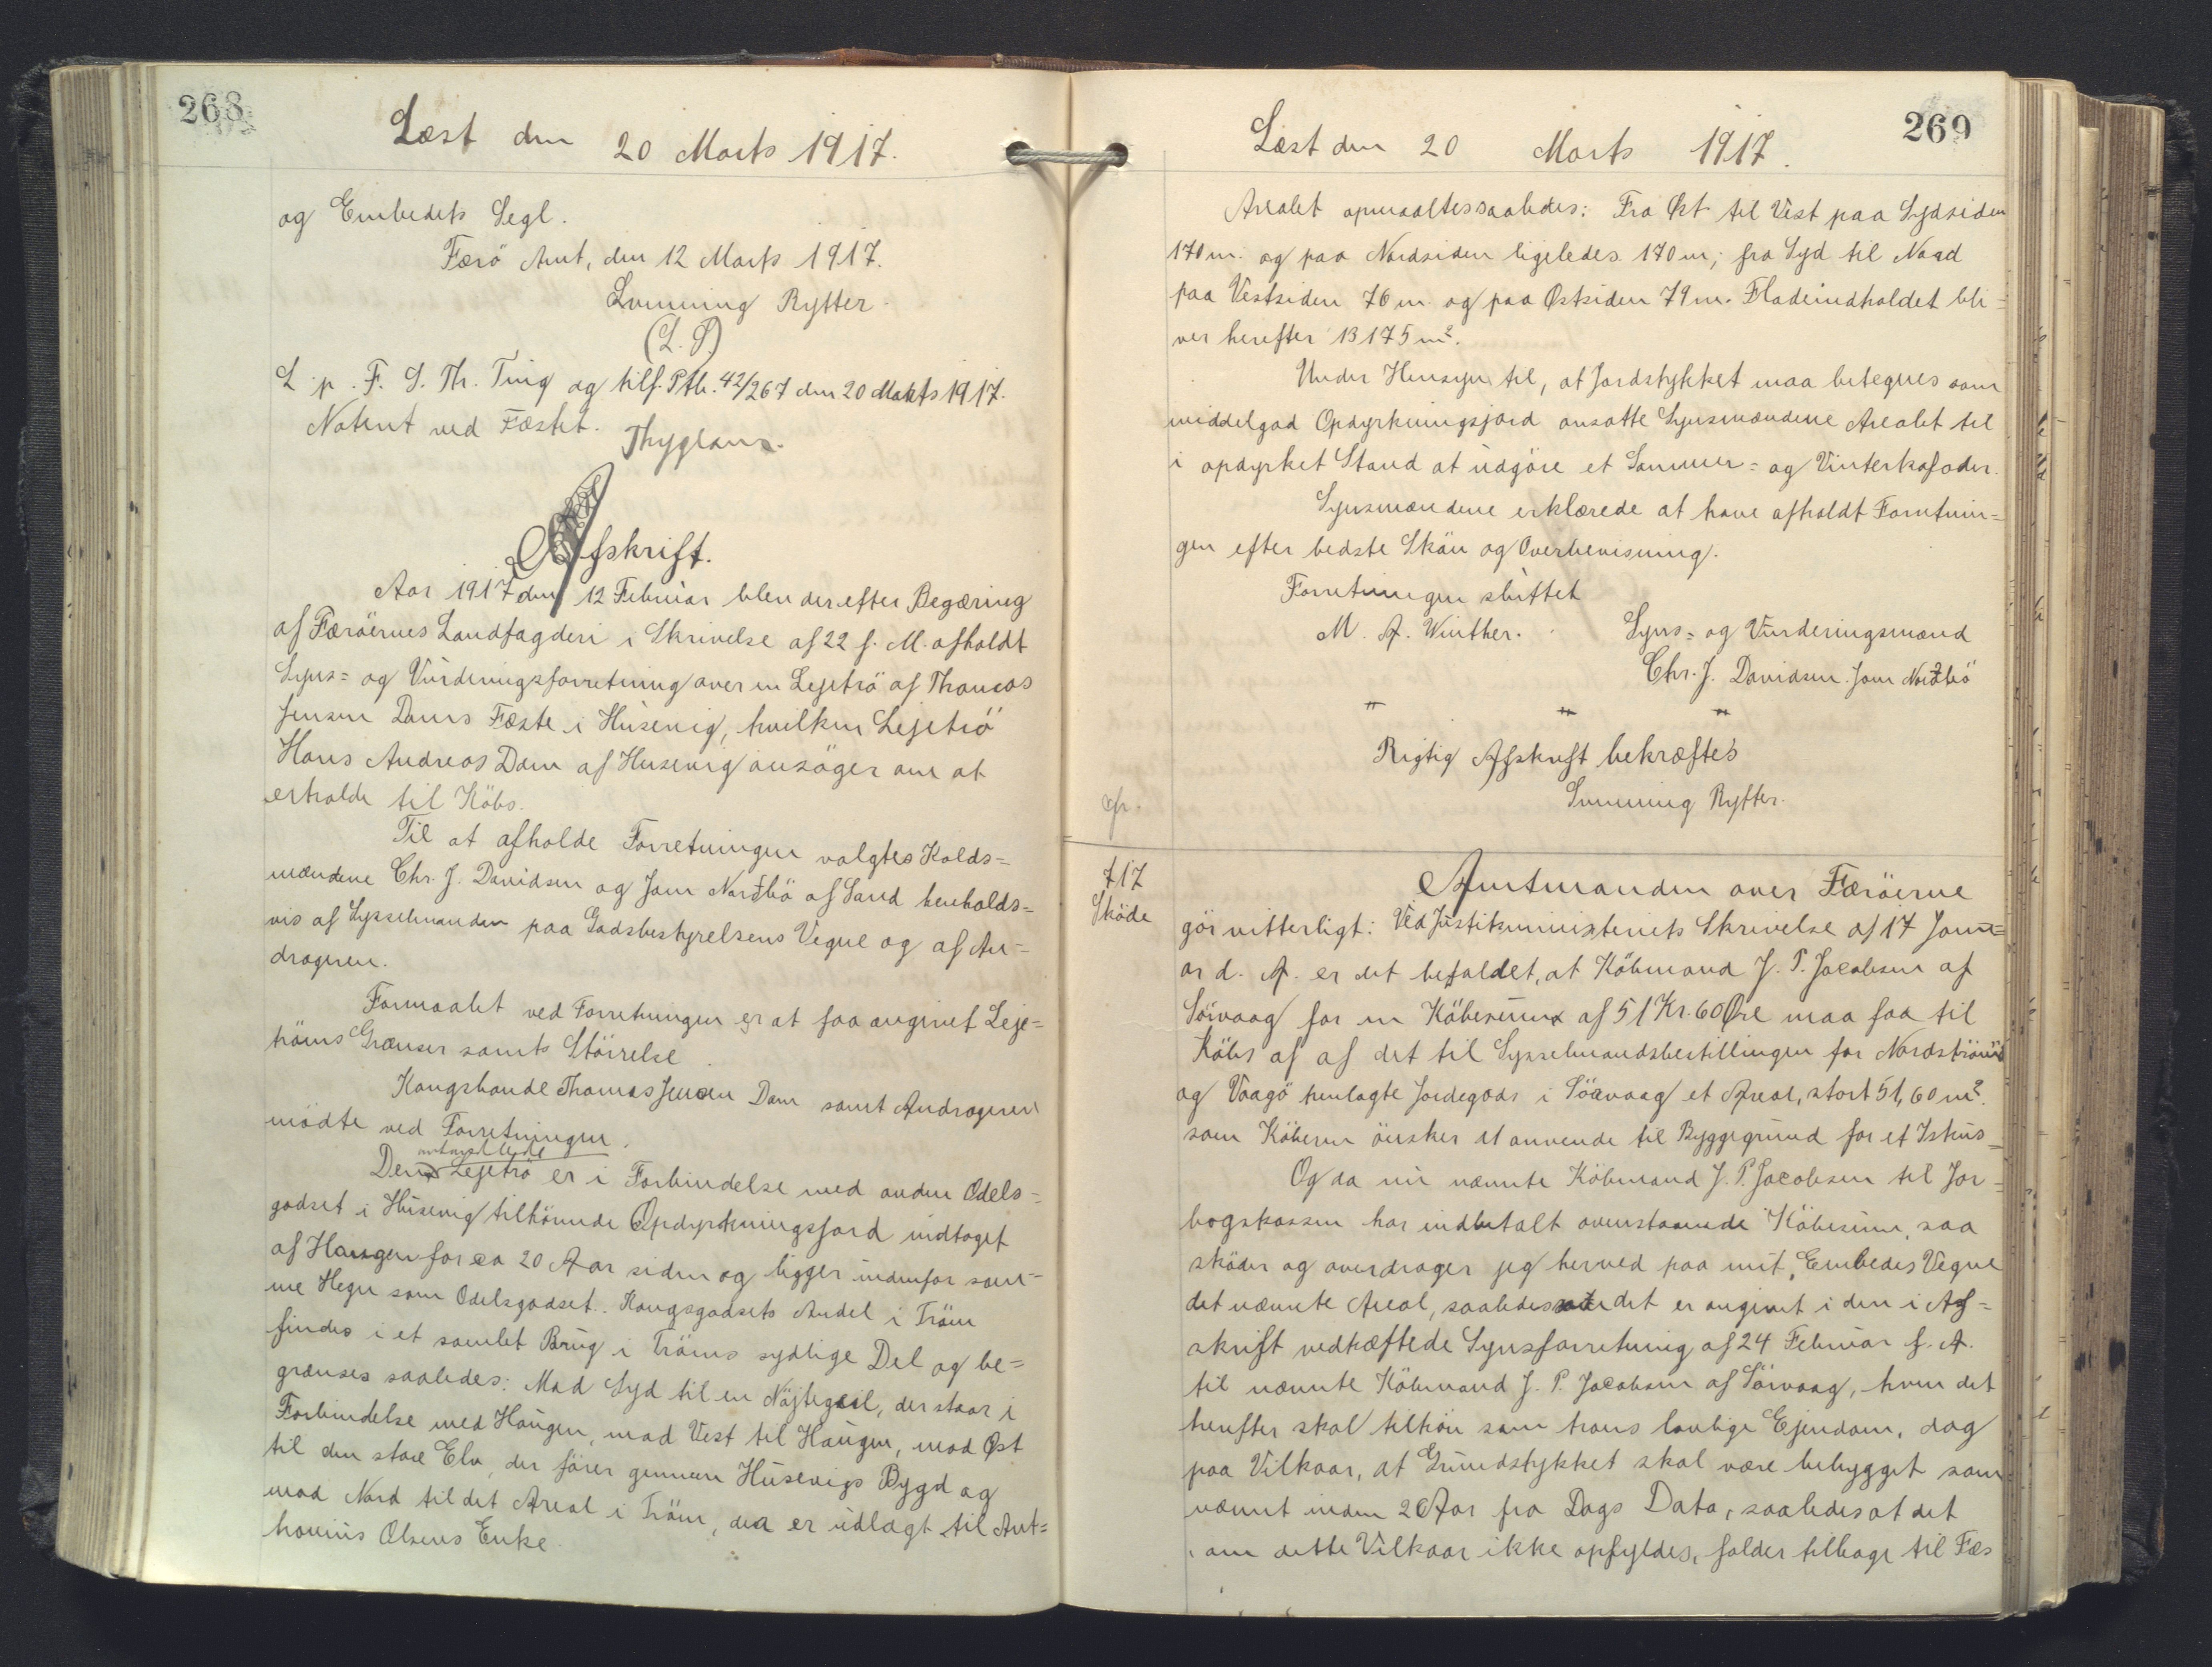 268
Læst den 20 Marts 1917.
og Embedets Segl.
Færö Amt, den 12 Marts 1917.
Svenning Rytter.
(L. S.)
L. p. F. S. Th. Ting og tilf. Ptb. 42/267 den 20 Marts 1917.
Noteret ved Fæstet.
Afskrift.
Aar 1917 den 12 Februar blev der efter Begæring
af Færöernes Landfogderi i Skrivelse af 22 f. M. afholdt
Syns= og Vurderingsforretning over en Lejetrö af Thomas
Jensen Dams Fæste i Húsevig, hvilken Lejetrö
Hans Andreas Dam af Husevig ansöger om at
erholde til Köbs.
Til at afholde Forretningen valgtes Kalds=
mændene Chr. J. Davidsen og Joen Nordbö af Sand henholds=
vis af Sysselmanden paa Godsbestyrelsens Vegne og af An=
drageren.
Formaalet ved Forretningen er at faa angivet Leje=
tröens Grænser samts Störrelse.
Kongsbonde Thomas Jensen Dam samt Andrageren
mödte ved Forretningen.
omhandlede
Den Lejetrö er i Forbindelse med anden Odels=
godset i Húsevig tilhörende Opdyrkningsjord indtaget
af Haugen for ca 20 Aar siden og ligger indenfor sam=
me Hegn som Odelsgodset. Kongsgodsets Andel i Tröen
findes i et samlet Brug i Tröens sydlige Del og be=
grænses saaledes: Mod Syd til en Nöjtegeil, der staar i
Forbindelse med Haugen, mod Vest til Haugen, mod Øst
til den store Elv, der förer gennem Húsevigs Bygd og
mod Nord til det Areal i Tröen, der er udlagt til Ant=
honius Olsens Enke.
269
Læst den 20 Marts 1917.
Arealet opmaaltes saaledes: Fra Øst til Vest paa Sydsiden
170 m. og paa Nordsiden ligeledes 170 m; fra Syd til Nord
paa Vestsiden 76 m. og paa Østsiden 79 m. Fladeindholdet bli=
ver herefter 13175 m².
Under Hensyn til, at Jordstykket maa betegnes som
middelgod Opdyrkningsjord ansatte Synsmændene Arealet til
i opdyrket Stand at udgöre et Sommer= og Vinterkofoder.
Synsmændene erklærede at have afholdt Forretnin=
gen efter bedste Skön og Overbevisning.
Forretningen sluttet
M. A. Winther. Syns= og Vurderingsmænd
Chr. J. Davidsen. Joen Nordbö
" " "
Rigtig Afskrift bekræftes
Svenning Rytter.
717
Sköde
Amtmanden over Færöerne
gör vitterligt: Ved Justitsministeriets Skrivelse af 17 Janu=
ar d. A. er det befaldet, at Köbmand J. P. Jacobsen af
Sörvaag for en Köbesum af 51 Kr. 60 Øre maa faa til
Köbs af af det til Sysselmandsbestillingen for Nordströmö
og Vaagö henlagte Jordegods i Sörvaag et Areal, stort 51,60 m².
som Köberen önsker at anvende til Byggegrund for et Ishus=
Og da nu nævnte Köbmand J. P. Jacobsen til Jor=
bogskassen har indbetalt ovenstaaende Köbesum, saa
sköder og overdrager jeg herved paa mit Embedes Vegne
det nævnte Areal, saaledes som det er angivet i den i Af=
skrift vedhæftede Synsforretning af 24 Februar f. A.
til nævnte Köbmand J. P. Jacobsen af Sörvaag, hvem det
herefter skal tilhöre som hans lovlige Ejendom, dog
paa Vilkaar, at Grundstykket skal være bebygget som
nævnt inden 2 Aar fra Dags Dato, saaledes at det
om dette Vilkaar ikke opfyldes, falder tilbage til Fæs